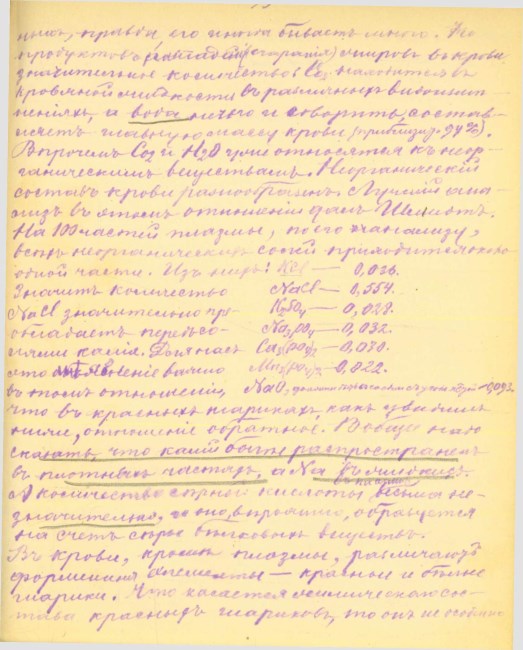 правда, его иногда бываетъ много. Изъ
продуктовъ (сгоранія) жировъ въ крови
значительное количество CO₂ находится въ
кровяной жидкости въ различныхъ видоизмѣ-
неніяхъ, и вода, нечего и говорить, состав-
ляетъ главную массу крови (приблизит. 94%).
Впрочемъ CO₂ и H₂O уже относятся къ неор-
ганическимъ веществамъ. Неорганическій
составъ крови разнообразенъ. Лучшій ана-
лизъ въ этомъ отношеніи далъ Шмидтъ.
На 100 частей плазмы, по его анализу,
всѣхъ неорганическихъ солей приходится около
одной части. Изъ нихъ: KCl — 0,036.
Значитъ количество NaCl — 0,554.
NaCl значительно пре- K₂SO₄ — 0,028.
обладаетъ передъ со- Na₃PO₄ — 0,032.
лями калія. Для насъ Ca₃(PO₄)₂ — 0,030.
это явленіе важно — 0,022.
въ томъ отношеніи, NaO,
что въ красныхъ шарикахъ, какъ увидимъ
ниже, отношеніе обратное. Вообще надо
сказать, что калій болѣе распространенъ
въ плотныхъ частяхъ, а Na въ жидкихъ.
А количество сѣрной кислоты весьма не-
значительно, и оно, вѣроятно, образуется
на счетъ сѣры бѣлковыхъ веществъ.
Въ крови, кромѣ плазмы, различаютъ
форменные элементы — красные и бѣлые
шарики. Что касается химическаго со-
става красныхъ шариковъ, то онъ не особенно